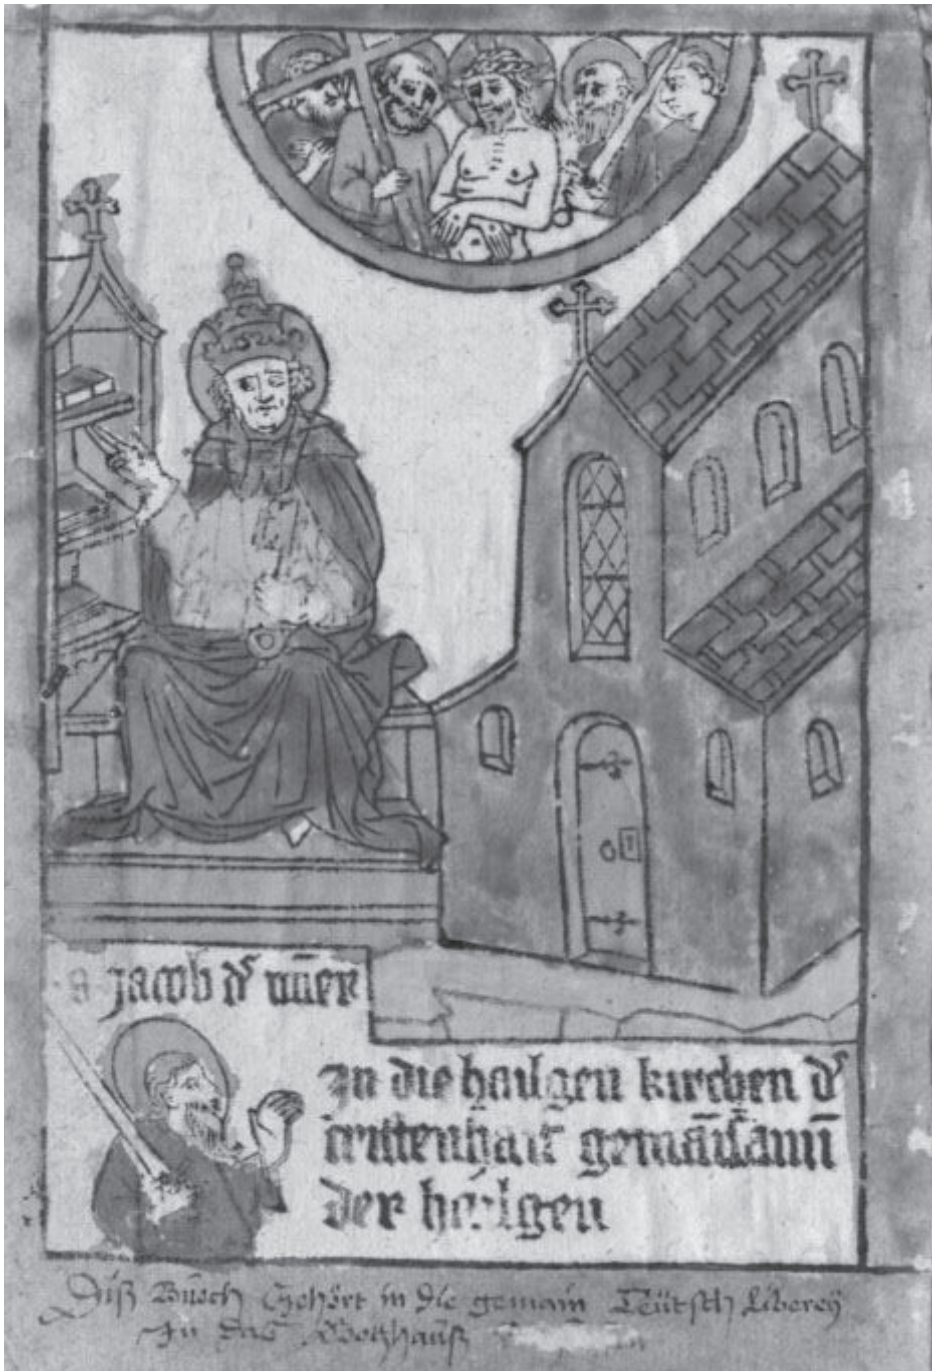 S Jacob d͛ mīer
In die hailgen kirchen d͛
cristenhait gemaīsamīī
der hailgen
Diß Buoch Gehört in die gemain Teütsch Liberey
In das Gotzhauß